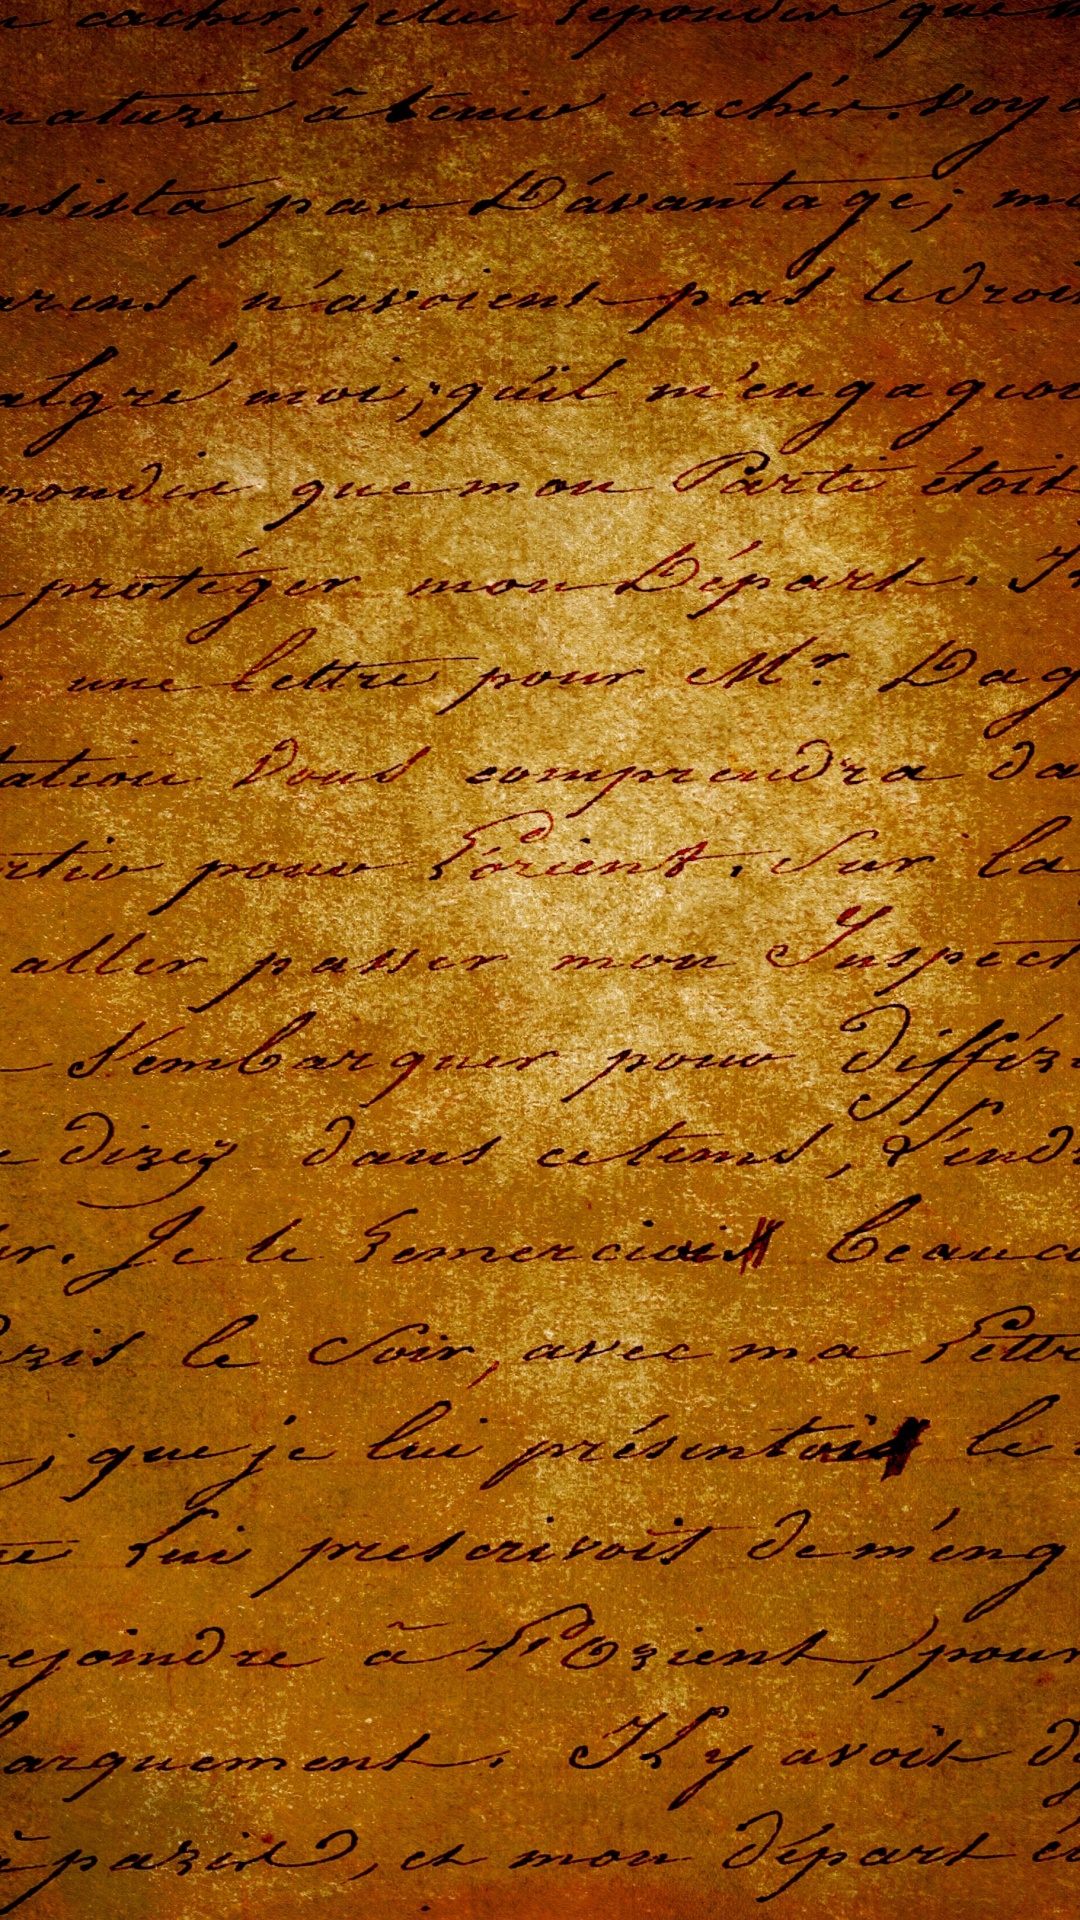 cacher; je lui repondis que
nature à tenir cachée. Voya
nsista pas Davantage; ma
arens n'avoient pas le droit
algré moi; qu'il m'engageoi
pondis que mon Parti étoit
protéger mon Départ. Il
une lettre pour Mr. Dag
tation Vous comprendra da
rtir pour L'orient. Sur la
aller passer mon Inspect
S'embarquer pour différ
e direz dans cetems, L'end
ur. Je le remerciois beauco
Paris le Soir, avec ma Lettre
; que je lui présentois le
Lui prescrivoit de m'eng
rejoindre à L'Orient, pour
barquement. Il y avoit d
à paris, et mon départ ét